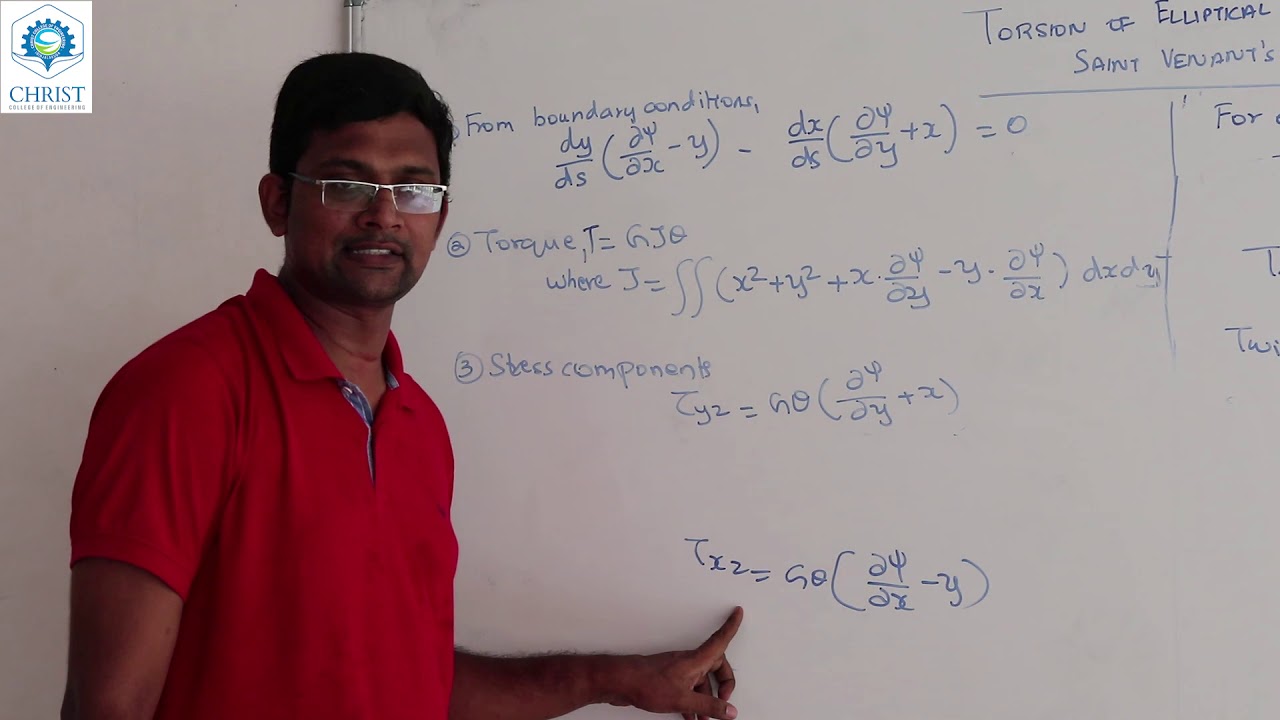 CHRIST
COLLEGE OF ENGINEERING
TORSION OF ELLIPTICAL
SAINT VENANT'S
From boundary conditions,
dy/ds (∂Ψ/∂x - y) - dx/ds (∂Ψ/∂y + x) = 0
② Torque, T = GJθ
where J = ∬ (x² + y² + x · ∂Ψ/∂y - y · ∂Ψ/∂x) dx dy
③ Stess components
τyz = Gθ (∂Ψ/∂y + x)
τxz = Gθ (∂Ψ/∂x - y)
For